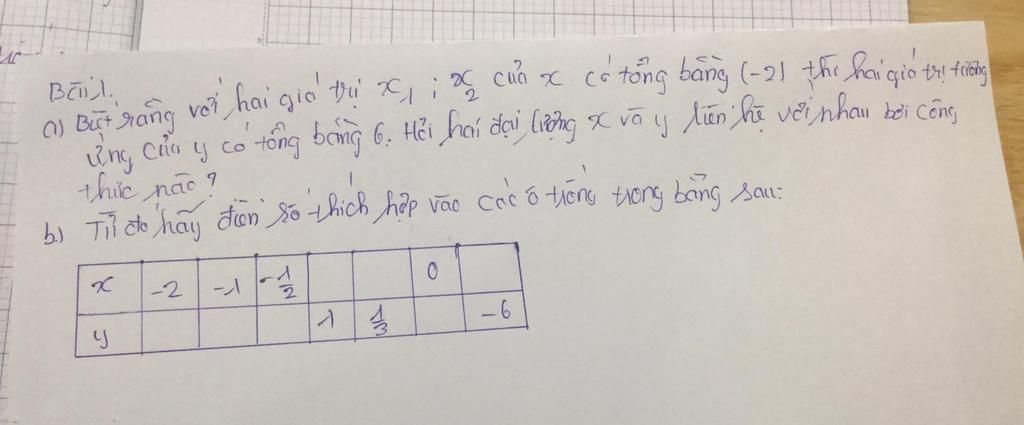 Bài 1.
a) Biết rằng với hai giá trị x1 ; x2 của x có tổng bằng (-2) thì hai giá trị tương
ứng của y có tổng bằng 6. Hỏi hai đại lượng x và y liên hệ với nhau bởi công
thức nào?
b) Từ đó hãy điền số thích hợp vào các ô trống trong bảng sau:
x -2 -1 -1/2 0
y 1 1/3 -6